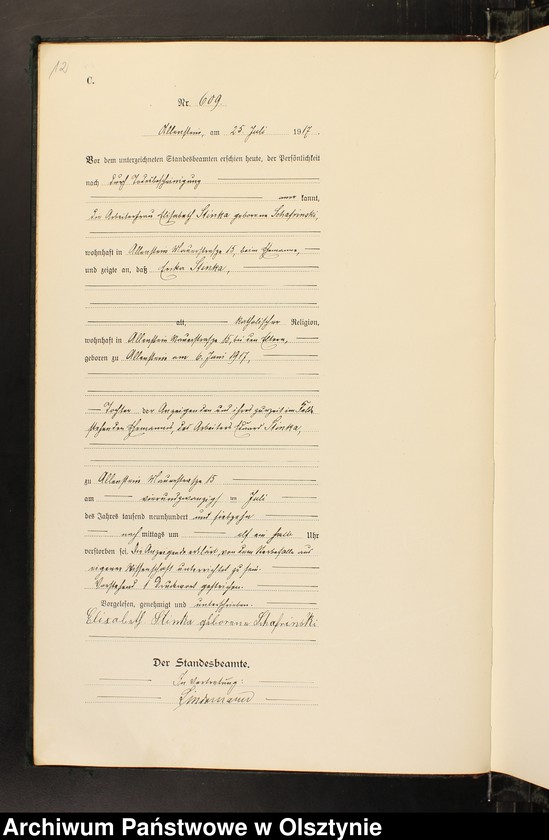 12
C.
Nr. 609
Allenstein, am 25. Juli 1917.
Vor dem unterzeichneten Standesbeamten erschien heute, der Persönlichkeit
nach durch
kannt,
die Arbeiterfrau Elisabeth Stinka geborene Schafrinski,
wohnhaft in Allenstein Mauerstraße 15, beim Ehemanne,
und zeigte an, daß Erika Stinka,
alt, katholischer Religion,
wohnhaft in Allenstein Mauerstraße 15, bei den Eltern,
geboren zu Allenstein am 6. Juni 1917,
Tochter der Anzeigenden und ihres zurzeit im Felde
stehenden Ehemannes, des Arbeiters Eduard Stinka,
zu Allenstein Mauerstraße 15
am vierundzwanzigsten Juli
des Jahres tausend neunhundert und siebzehn
nachmittags um elf ein halb Uhr
verstorben sei. Die Anzeigende erklärt, von dem Sterbefalle aus
eigener Wissenschaft unterrichtet zu sein.
Vorstehend 1 Druckwort gestrichen.
Vorgelesen, genehmigt und unterschrieben.
Elisabeth Stinka geborene Schafrinski
Der Standesbeamte.
In Vertretung:
Lindemann
Archiwum Państwowe w Olsztynie